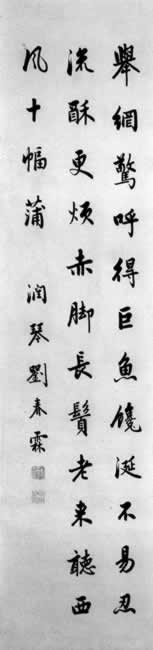 舉網驚呼得巨魚饞涎不易忍
流酥更煩赤脚長鬚老來聽西
風十幅蒲 润琴劉春霖